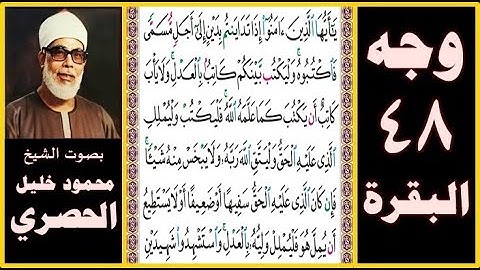 وجه
٤٨
البقرة
يَٰٓأَيُّهَا ٱلَّذِينَ ءَامَنُوٓا۟ إِذَا تَدَايَنتُم بِدَيْنٍ إِلَىٰٓ أَجَلٍ مُّسَمًّى
فَٱكْتُبُوهُ ۚ وَلْيَكْتُب بَّيْنَكُمْ كَاتِبٌۢ بِٱلْعَدْلِ ۚ وَلَا يَأْبَ
كَاتِبٌ أَن يَكْتُبَ كَمَا عَلَّمَهُ ٱللَّهُ ۚ فَلْيَكْتُبْ وَلْيُمْلِلِ
ٱلَّذِى عَلَيْهِ ٱلْحَقُّ وَلْيَتَّقِ ٱللَّهَ رَبَّهُۥ وَلَا يَبْخَسْ مِنْهُ شَيْـًٔا ۚ
فَإِن كَانَ ٱلَّذِى عَلَيْهِ ٱلْحَقُّ سَفِيهًا أَوْ ضَعِيفًا أَوْ لَا يَسْتَطِيعُ
أَن يُمِلَّ هُوَ فَلْيُمْلِلْ وَلِيُّهُۥ بِٱلْعَدْلِ ۚ وَٱسْتَشْهِدُوا۟ شَهِيدَيْنِ
بصوت الشيخ
محمود خليل
الحصري